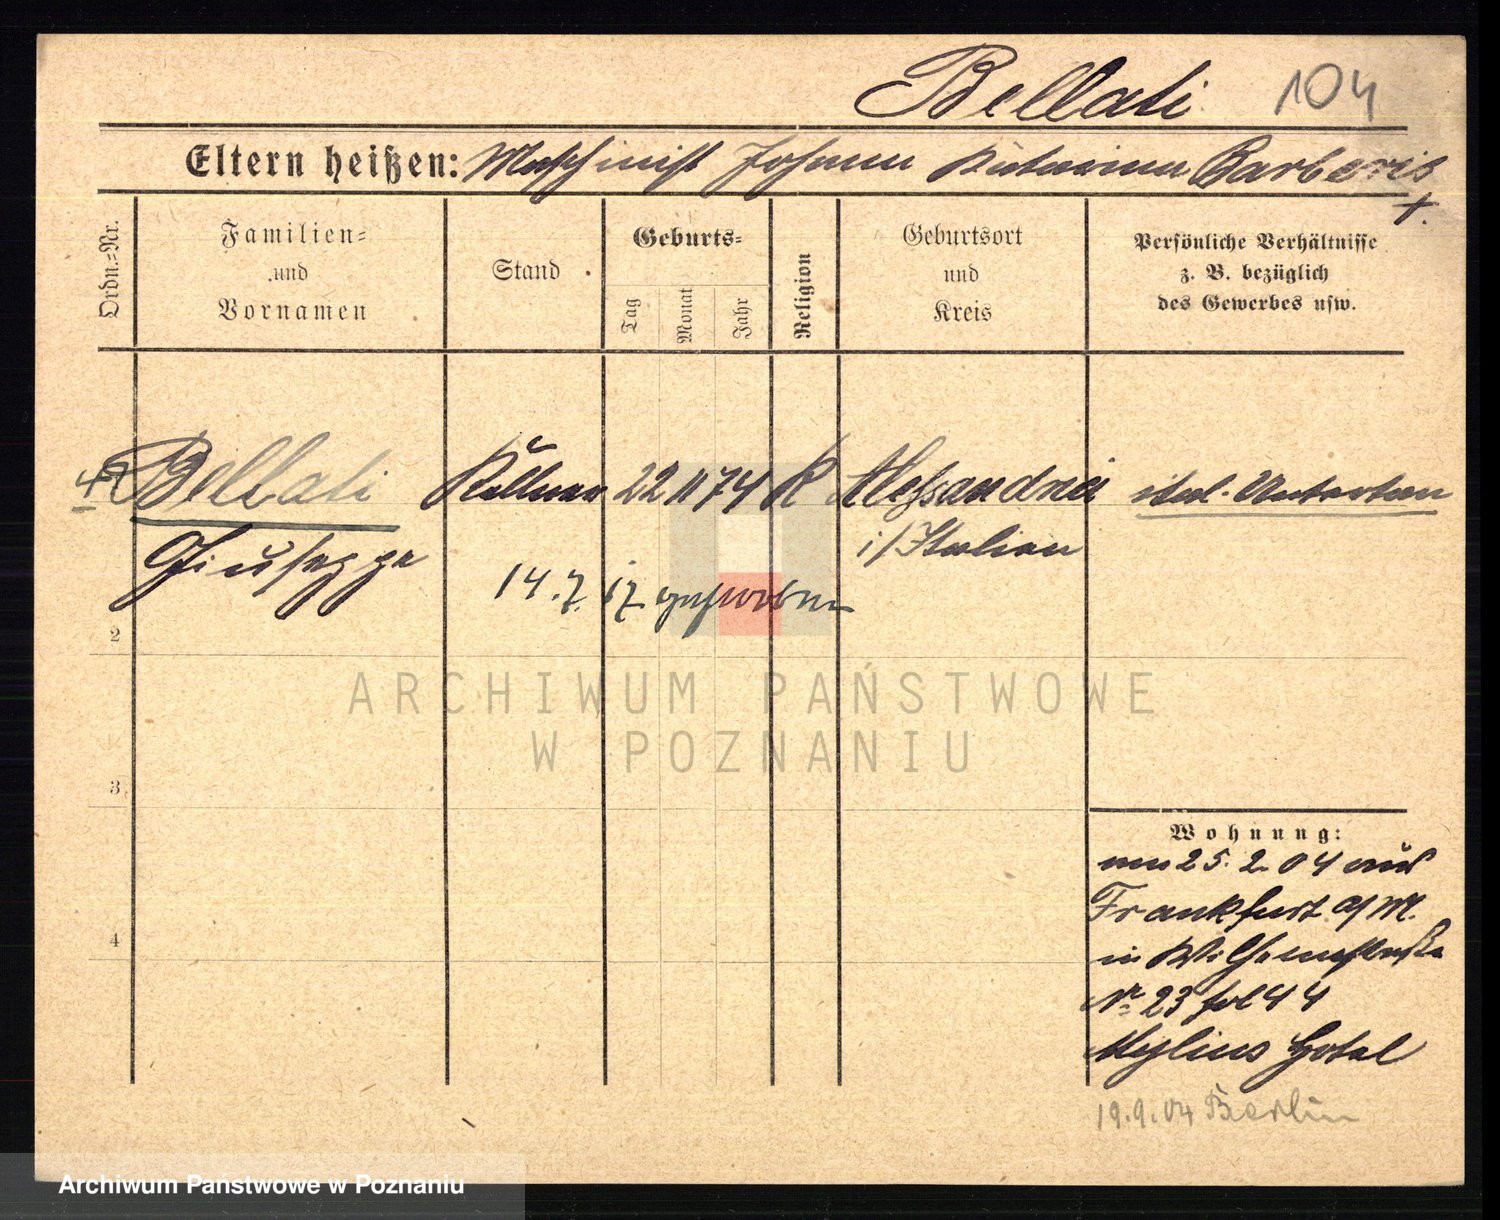 Bellati 104
Eltern heißen: Maschinist Johann Katarina Barberis
†.
Ordn.=Nr.
Familien=
und
Vornamen
Stand
Geburts=
Tag
Monat
Jahr
Religion
Geburtsort
und
Kreis
Persönliche Verhältnisse
z. B. bezüglich
des Gewerbes usw.
Bellati Kellner 22 11 74 K Alessandria ital. Untertan
Giuseppe i/Italien
14.7.17 gestorben
2
3
4
Wohnung:
am 25.2.04 aus
Frankfurt a/M.
in Wilhelmstraße
Nr 23 fol 44
Mylius Hotel
19.9.04 Berlin
ARCHIWUM PAŃSTWOWE
W POZNANIU
Archiwum Państwowe w Poznaniu